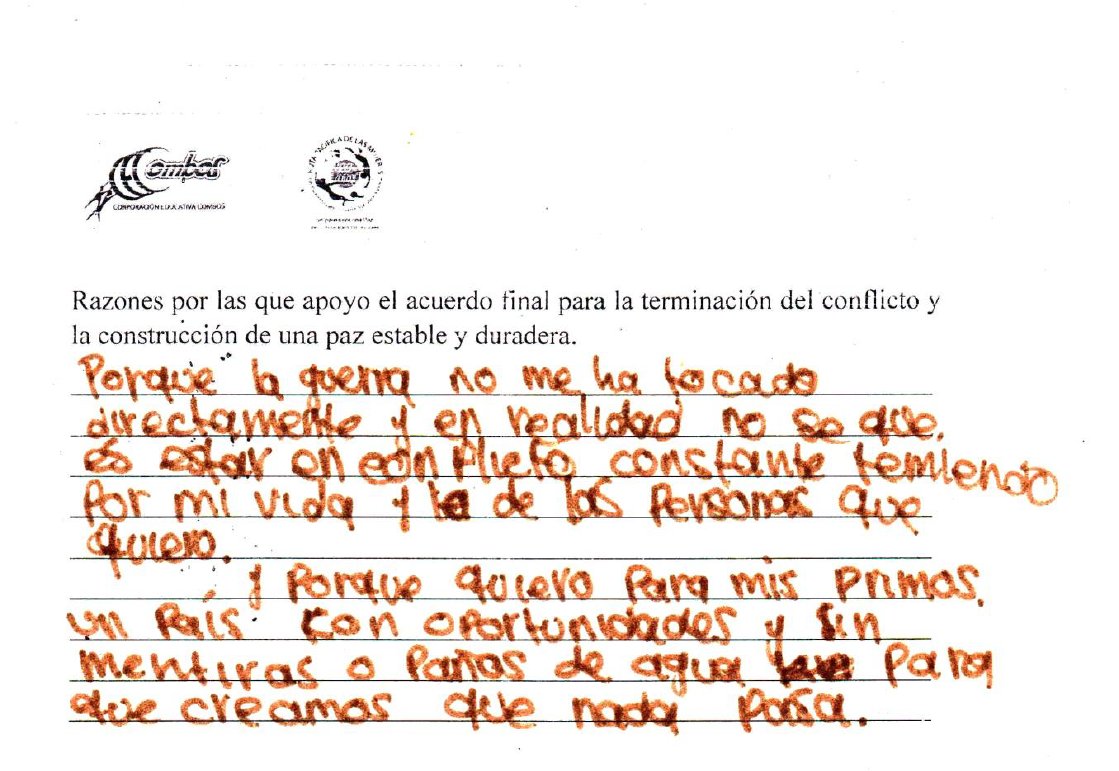 Combos
CORPORACIÓN EDUCATIVA COMBOS
RUTA PACÍFICA DE LAS MUJERES
Razones por las que apoyo el acuerdo final para la terminación del conflicto y
la construcción de una paz estable y duradera.
Porque la guerra no me ha tocado
directamente y en realidad no se que
es estar en conflicto constante temiendo
por mi vida y la de las personas que
quiero.
y porque quiero para mis primos
un país con oportunidades y sin
mentiras o pañas de agua para
que creamos que nada pasa.